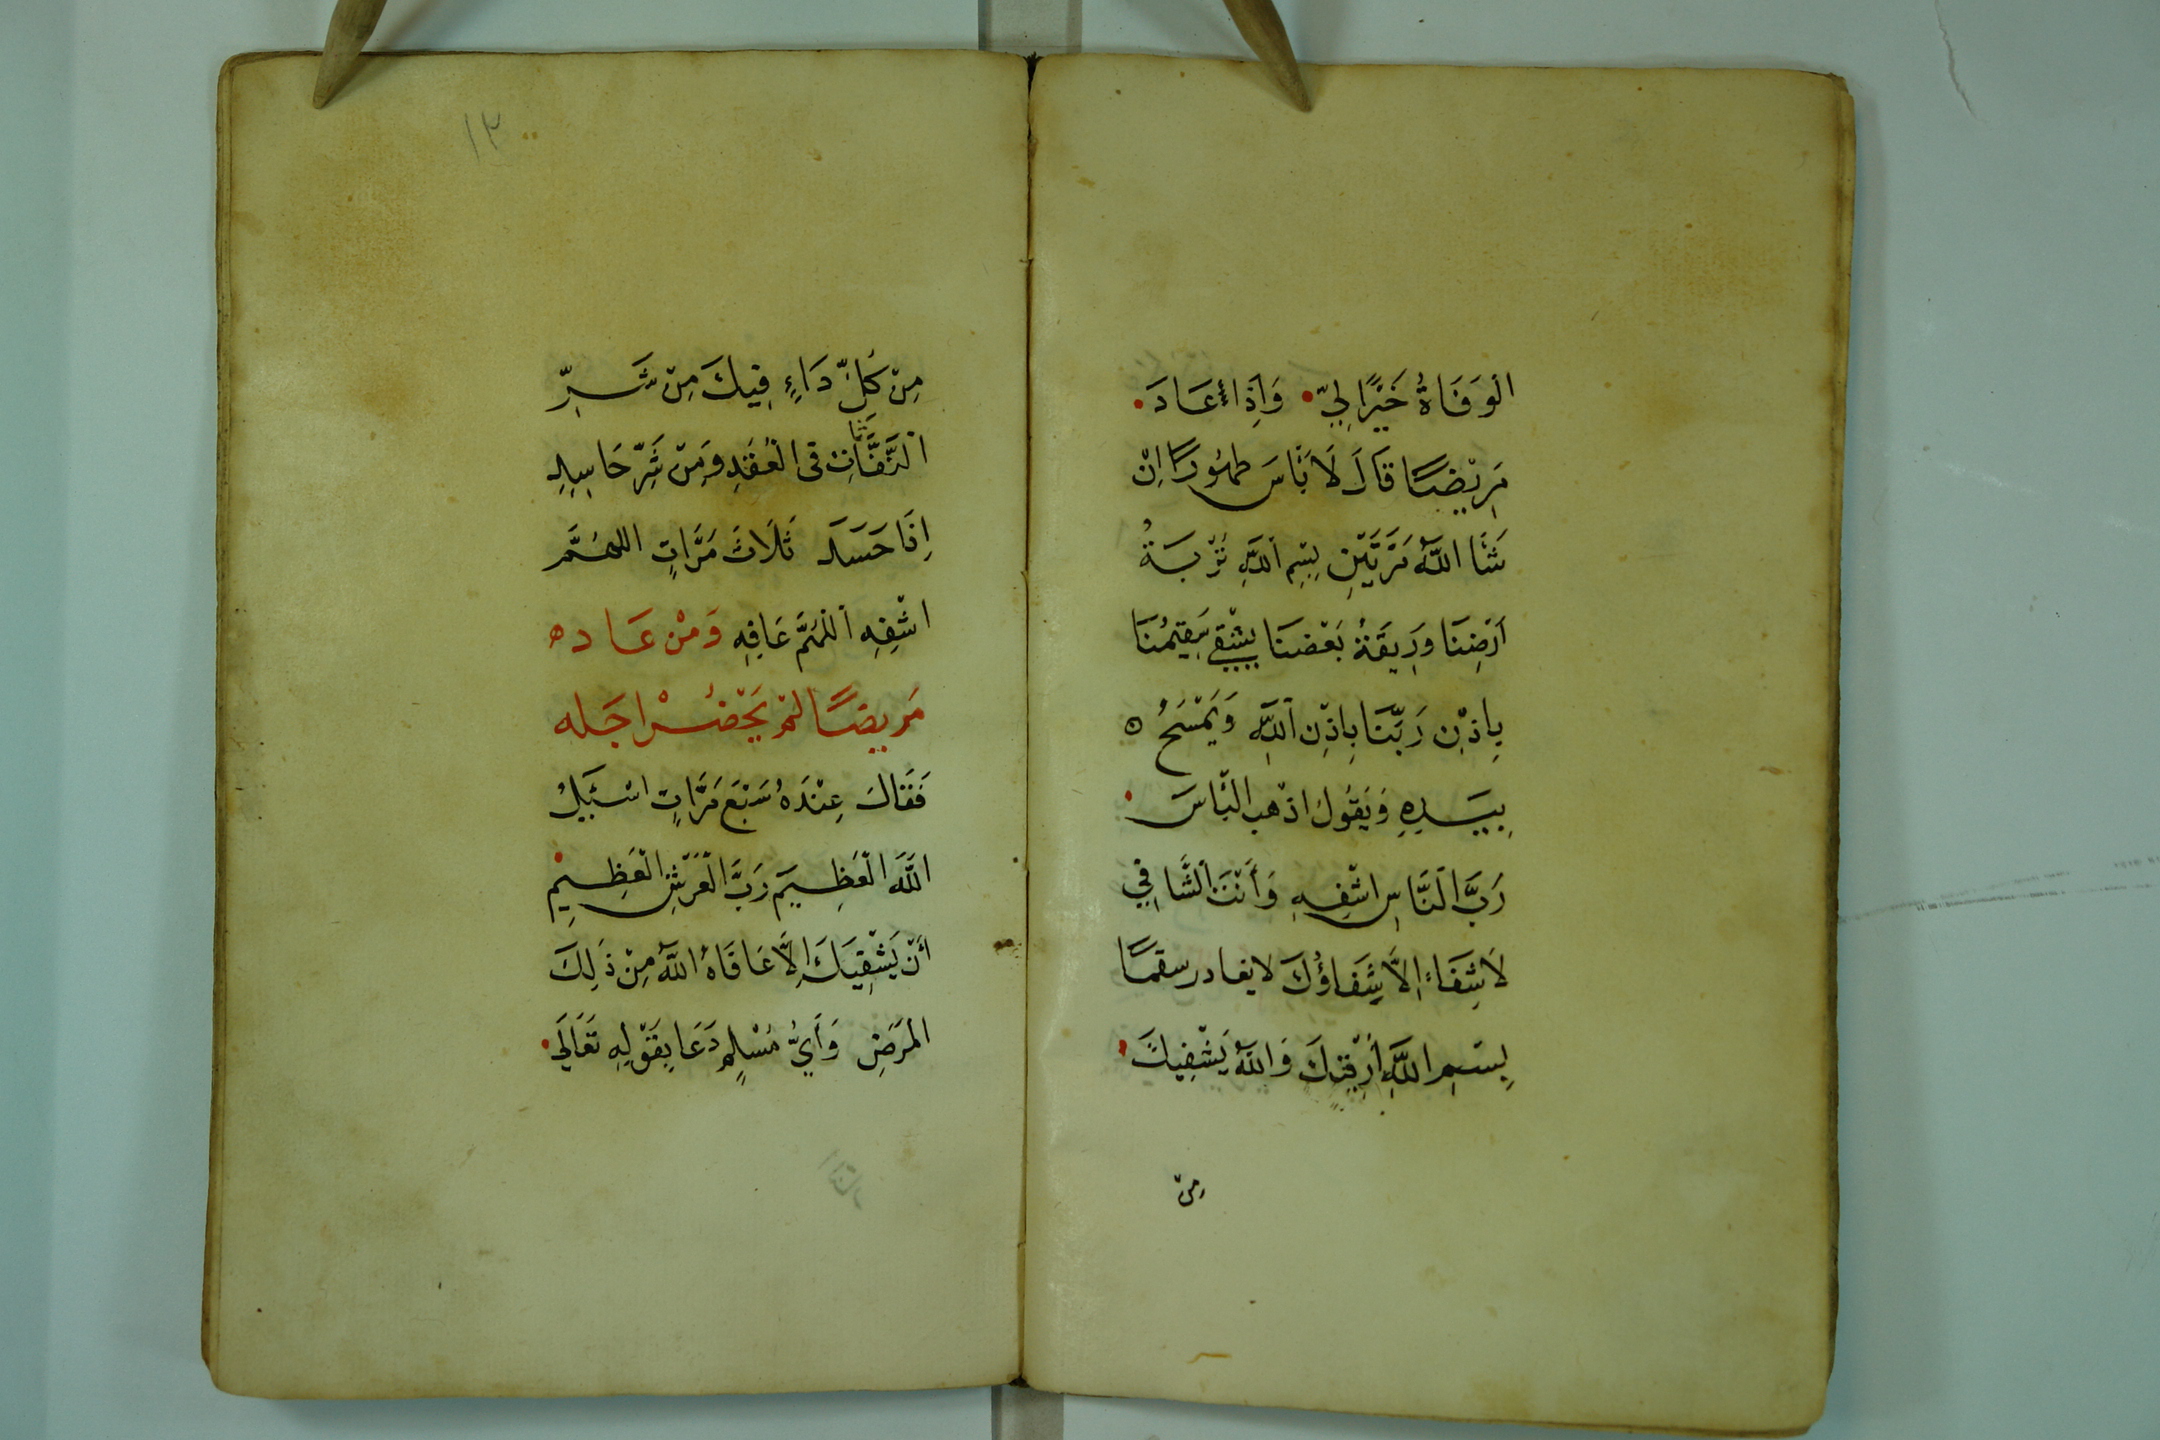 الْوَفَاةُ خَيْرًا لِيّ وَاِذَا عَادَ
مَرِيْضًا قَالَ لَا بَأْسَ طهُورًا اِنْ
شَآ اللّٰهُ مَرَّتَيْنِ بِسْمِ اللّٰهِ تُرْبَةُ
اَرْضِنَا وَرِيقَةُ بَعْضِنَا يُشْفٰي سَقِيمُنَا
بِاِذْنِ رَبِّنَا بِاِذْنِ اللّٰهِ وَيَمْسَحُ ه
بِيَدِهِ وَيَقُولُ اذْهب الْبَأسَ
رَبَّ النَّاسِ اشْفِهِ وَأَنْتَ الشَّافِي
لَا شِفَاءَ اِلَّا شِفَاؤُكَ لا يغادر سقمًا
بِسْمِ اللّٰهِ أَرْقِيكَ وَاللّٰهُ يَشْفِيكَ
مِنْ
١٣
مِنْ كُلِّ دَاءٍ فِيكَ مِنْ شَرِّ
النَّفَّاثَاتِ فى الْعُقَدِ وَمِنْ شَرِّ حَاسِدٍ
اِذَا حَسَدَ ثَلَاثَ مَرَّاتٍ اللهُمَّ
اشْفِهِ اللهُمَّ عَافِهِ وَمْن عَاده
مَريضًا لمْ يَحْضُرْ اجَله
فَقَالَ عِنْدَهُ سَبْعَ مَرَّاتٍ اسْئَلُ
اللّٰهَ الْعَظِيمَ رَبَّ الْعَرْشِ الْعَظِيمِ
أَنْ يَشْفِيَكَ اِلَّا عَافَاهُ اللّٰهُ مِنْ ذَلِكَ
الْمرَضِ وَأَيُّ مُسْلِمٍ دَعَا بِقَوْلِهِ تَعَالَي